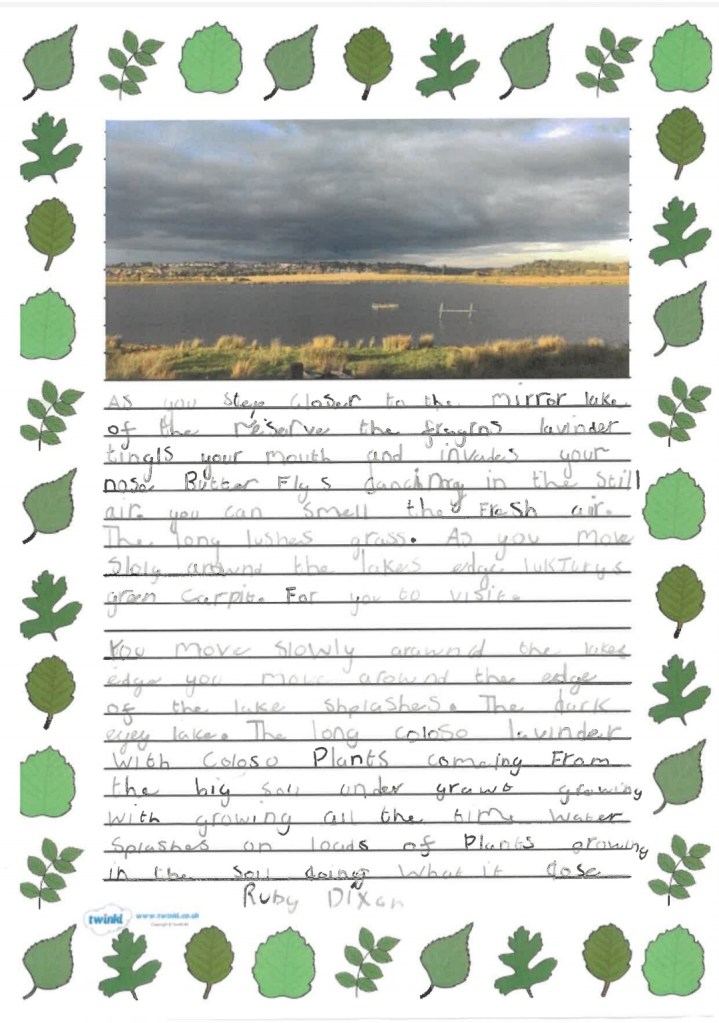 As you step closer to the mirror lake
of the reserve the fragrns lavinder
tingls your mouth and invades your
nose Butter Fly s dancing in the Still
air. you can smell the Fresh air.
The long lushes grass. As you move
Sloly around the lakes edge. lukturys
green carpit. For you to visit.
You move slowly arawnd the lakes
edge you move around the edge
of the lake shplashes. The dark
eyey lake. The long coloso lavinder
With Coloso Plants comeing From
the big soil under grawt growing
with growing all the time Water
Splashes on loads of Plants growing
in the soil doing What it dose
Ruby Dixan
twinkl www.twinkl.co.uk